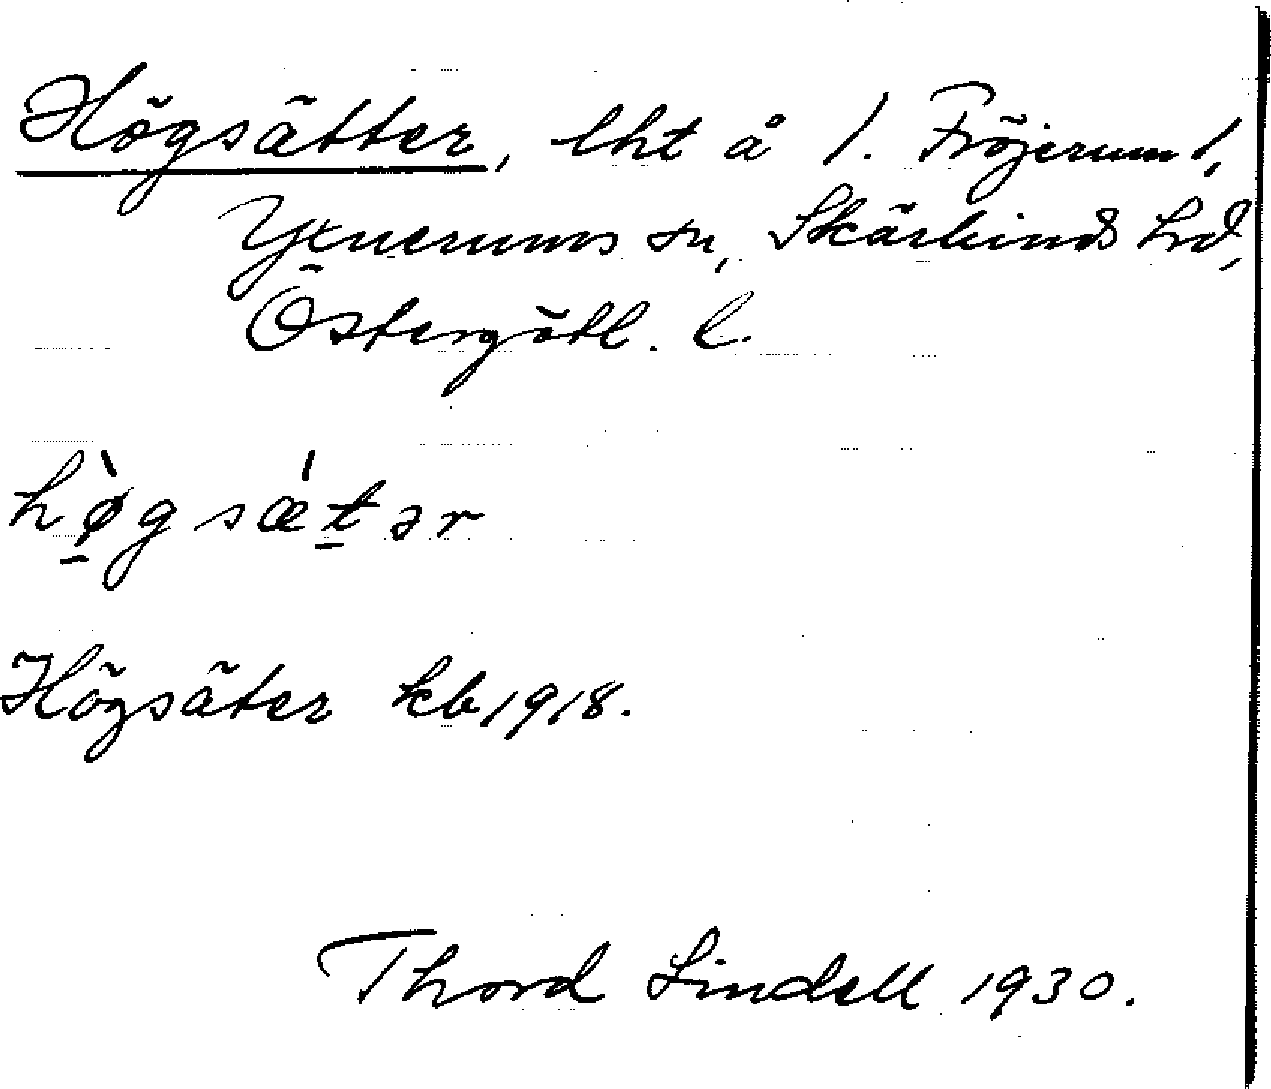 Högsätter, lht å 1. Fröjerum 1,
Yxnerums sn, Skärkinds hd,
Östergötl. l.
hø̀gsǽtər
Högsäter kb 1918.
Thord Lindell 1930.